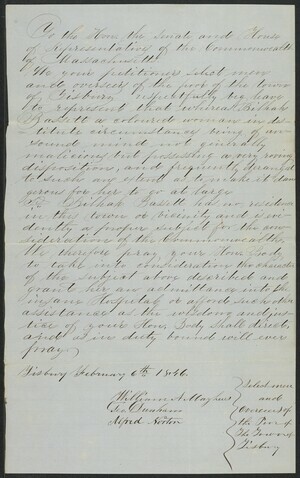 To the Hon. the Senate and House
of Representatives of the Commonwealth
of Massachusetts
We your petitioners select men
and overseers of the poor of the town
of Tisbury, respectfully
to represent that whereas Bilhah
Bassett a coloured woman in des-
titute circumstances being of un-
sound mind not generally
malicious but possessing a very roving
disposition, and frequently deranged
to such an extent as to make it dan-
gerous for her to go at large
Bilhah Bassett has no residence
in this town or vicinity and is evi-
dently a proper subject for the con-
sideration of the Commonwealth,
We therefore pray your Hon. Body
to take into consideration the character
of the subject above described and
grant her an admittance into the
insane Hospital, or afford such other
assistance as the wisdom and jus-
tice of your Hon. Body shall direct,
and as in duty bound will ever
pray
Tisbury February 6th 1846.
William A. Mayhew
Geo. Dunham
Alfred Norton
Select men
and
Overseers of
the Poor of
the Town of
Tisbury